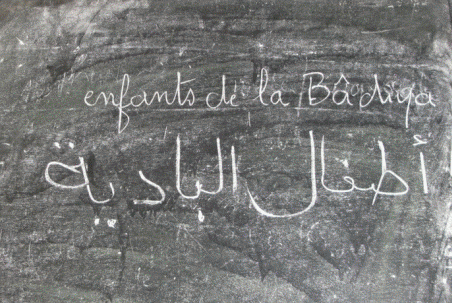 enfants de la Bâdiya
أطفال البادية